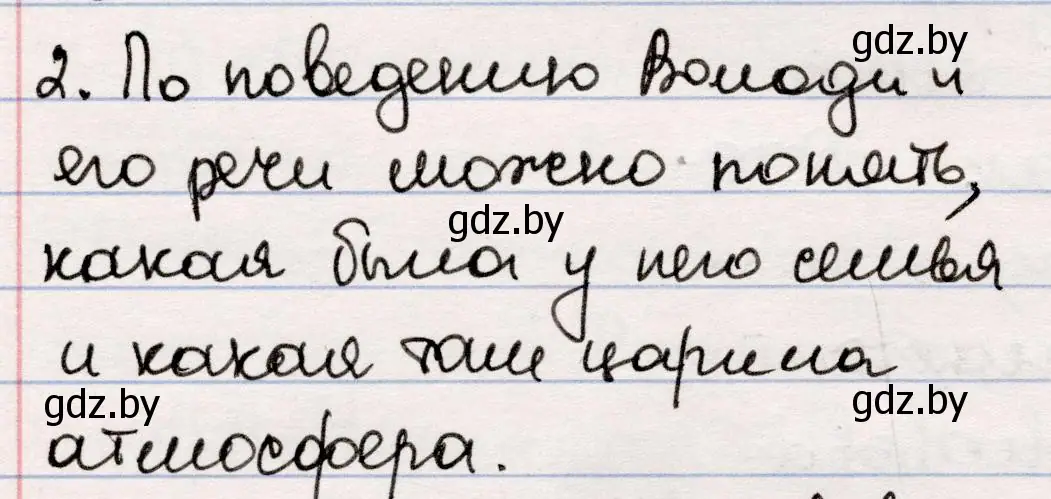 gdz.by
2. По поведению Володи и
его речи можно понять,
gdz.by
какая была у него семья
и какая там царила
gdz.by gdz.by
атмосфера.